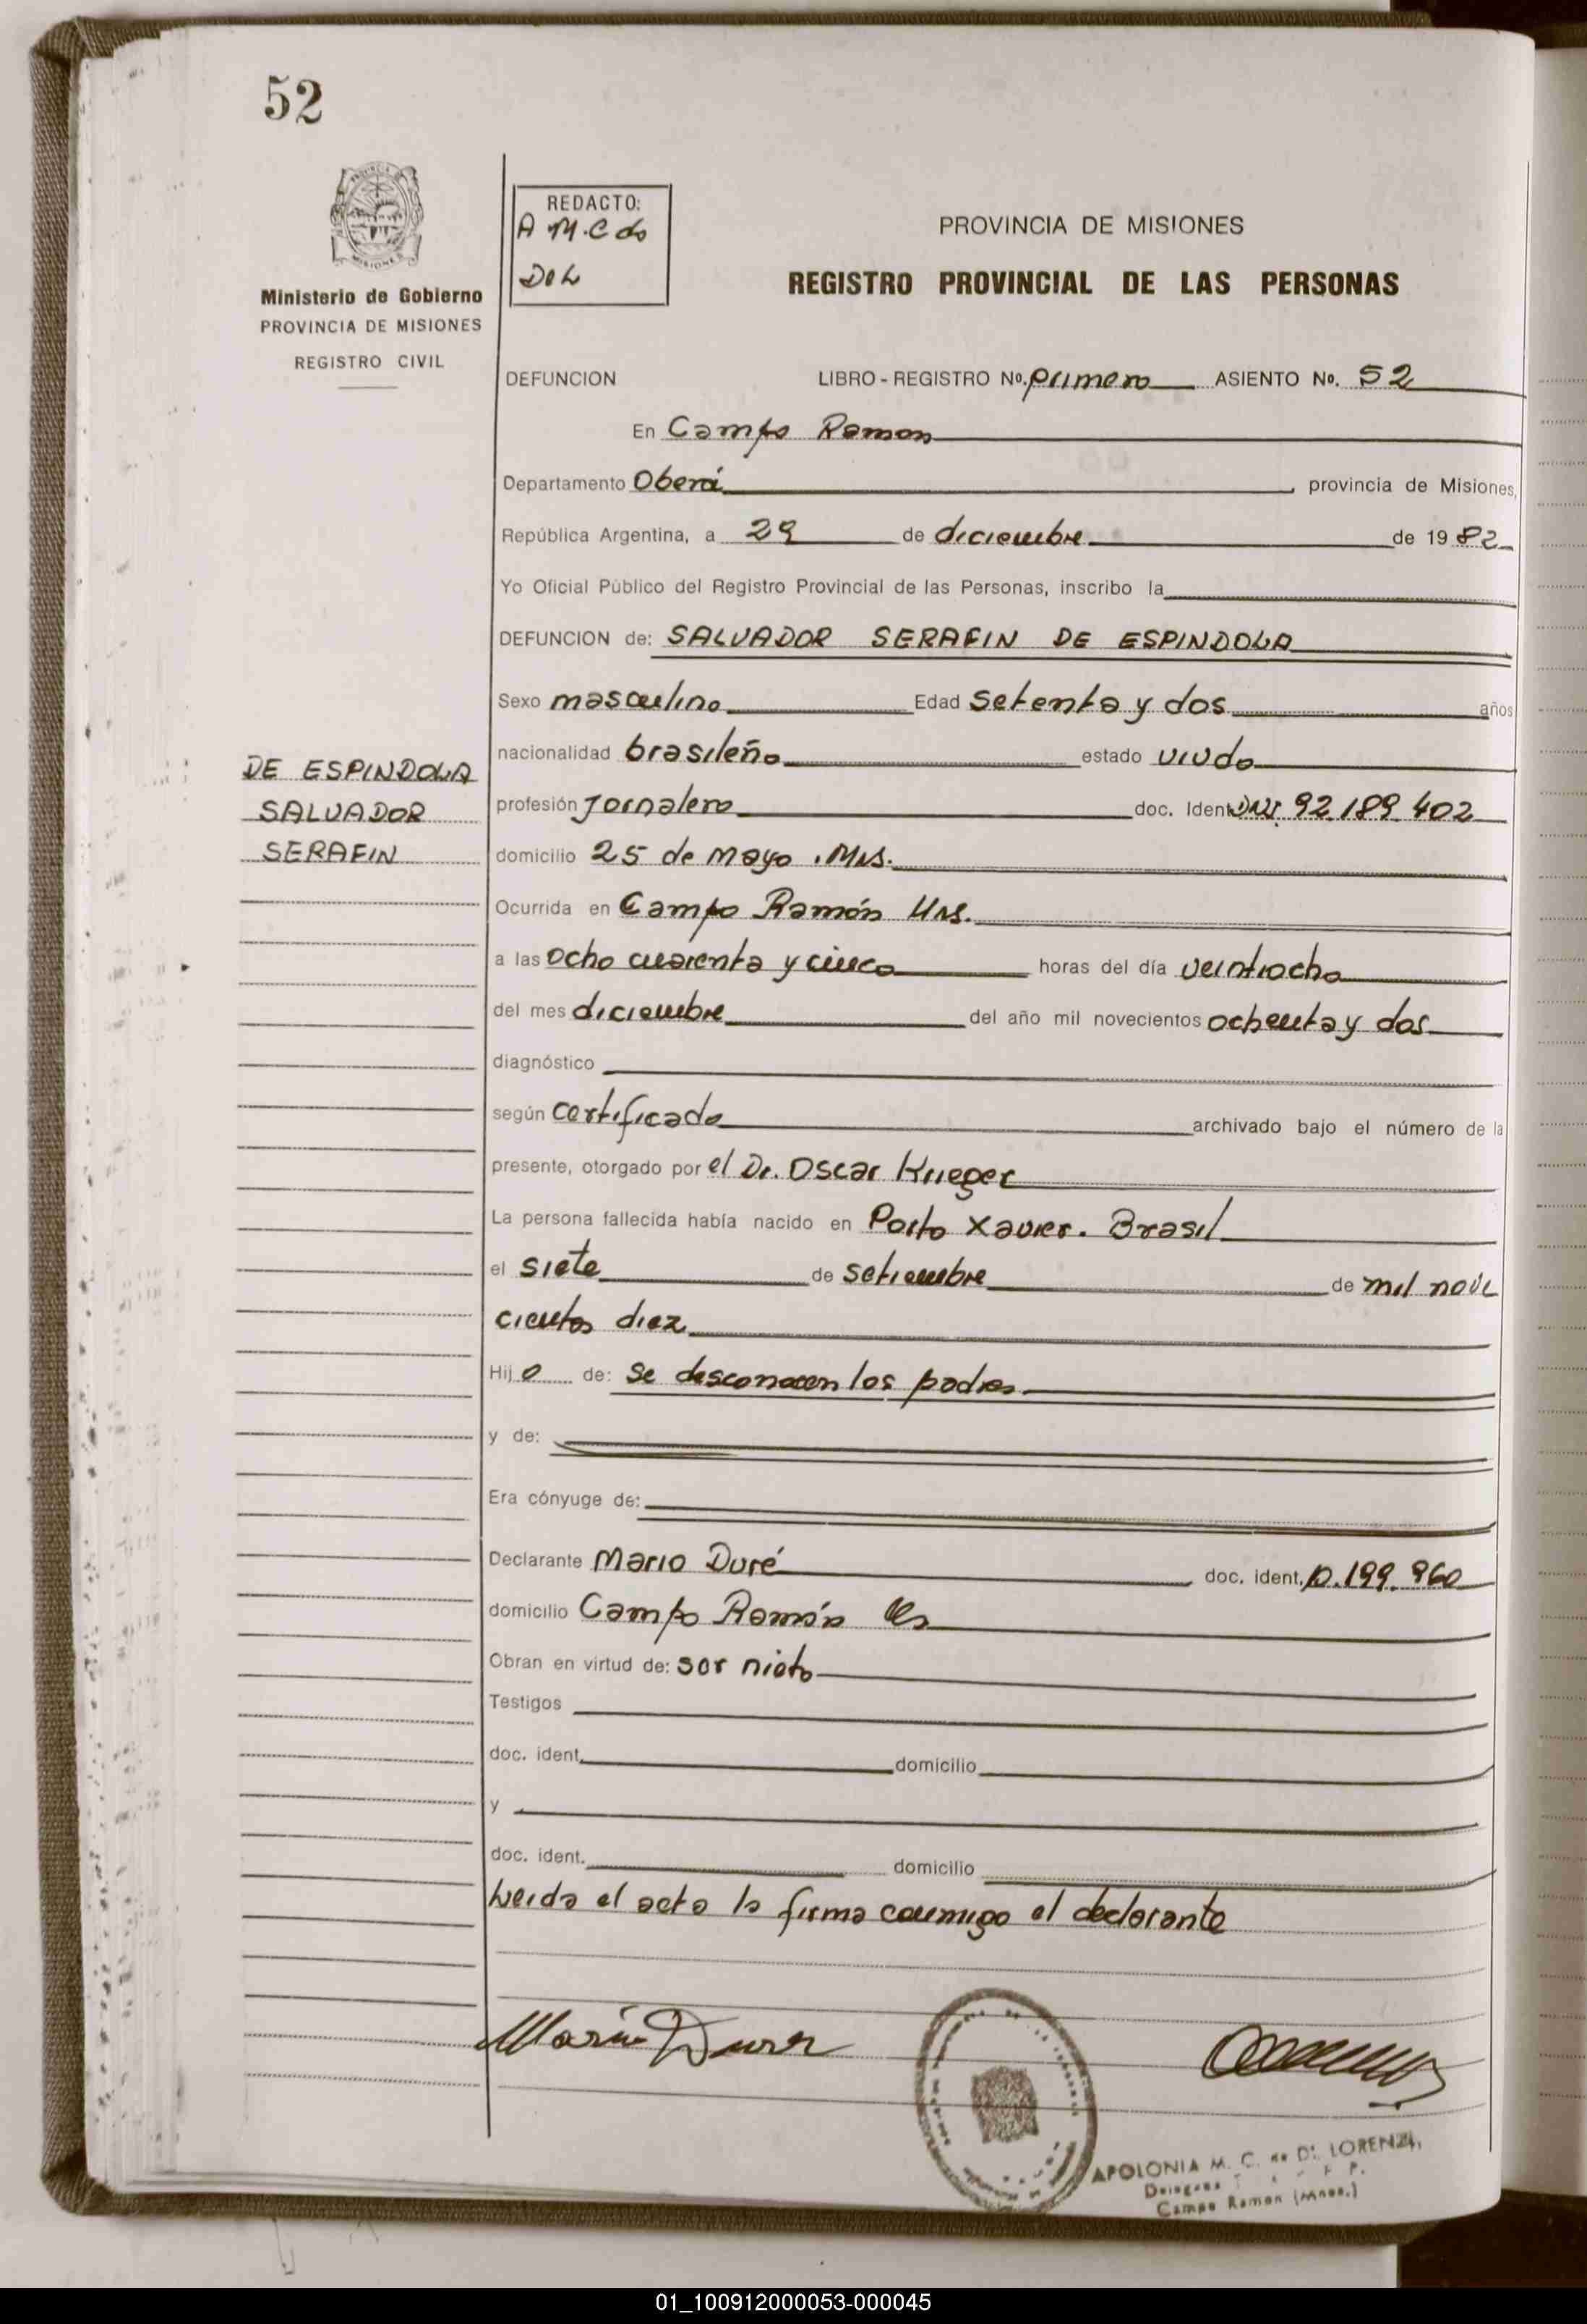 52
PROVINCIA DE
MISIONES
Ministerio de Gobierno
PROVINCIA DE MISIONES
REGISTRO CIVIL
REDACTO:
A M.C de
Di L
PROVINCIA DE MISIONES
REGISTRO PROVINCIAL DE LAS PERSONAS
DEFUNCION LIBRO - REGISTRO Nº. primero ASIENTO Nº. 52
En Campo Ramon
Departamento Oberá, provincia de Misiones,
República Argentina, a 29 de diciembre de 1982
Yo Oficial Público del Registro Provincial de las Personas, inscribo la
DEFUNCION de: SALVADOR SERAFIN DE ESPINDOLA
Sexo masculino Edad setenta y dos años
nacionalidad brasileño estado viudo
DE ESPINDOLA
SALVADOR
SERAFIN
profesión Jornalero doc. Ident DNI. 92.189.402
domicilio 25 de mayo. Mns.
Ocurrida en Campo Ramón Mns.
a las ocho cuarenta y cinco horas del día veintiocho
del mes diciembre del año mil novecientos ochenta y dos
diagnóstico
según certificado archivado bajo el número de la
presente, otorgado por el Dr. Oscar Krieger
La persona fallecida había nacido en Porto Xavier. Brasil
el siete de setiembre de mil nove
cientos diez
Hijo de: se desconocen los padres
y de:
Era cónyuge de:
Declarante Mario Duré doc. ident. 10.199.960
domicilio Campo Ramón
Obran en virtud de: ser nieto
Testigos
doc. ident. domicilio
y
doc. ident. domicilio
Leida el acta la firma conmigo el declarante
Mario Dure
APOLONIA M. C. de DI LORENZI
Delegada
Campo Ramon (Mnes.)
01_100912000053-000045